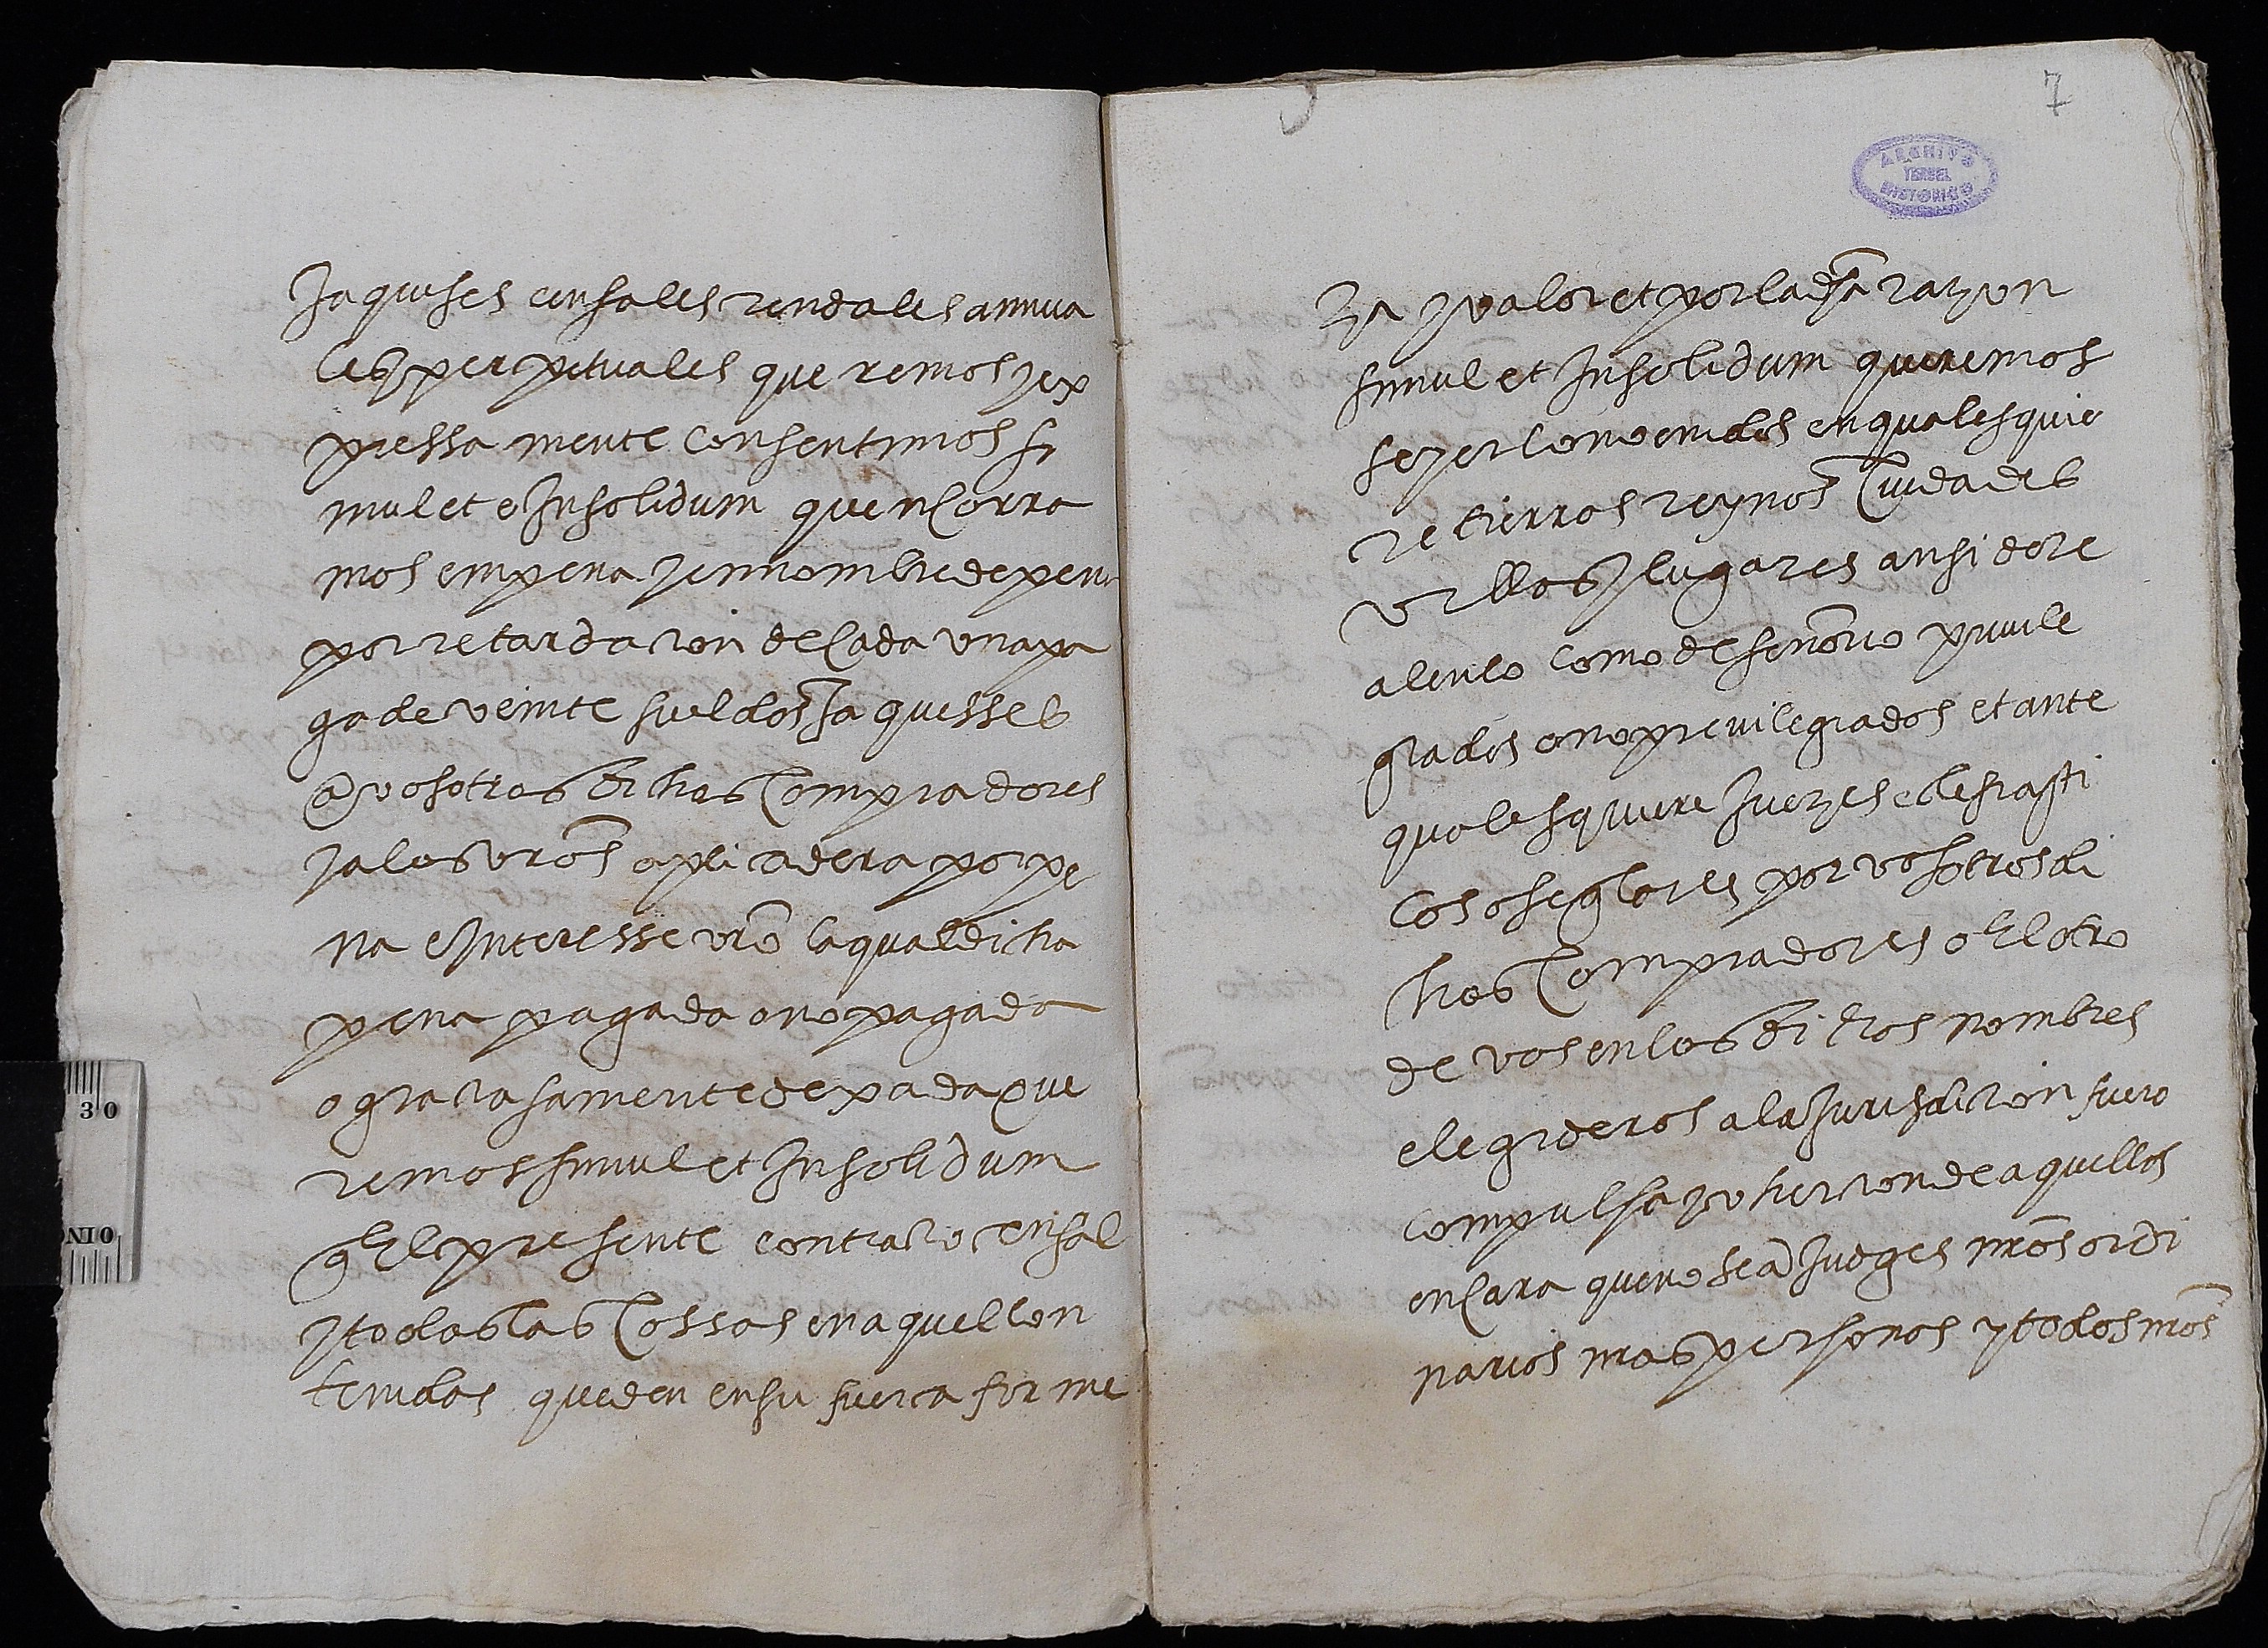 Jaqueses censales rendales annua
les y perpetuales queremos y ex
pressa mente consentimos si
mul et e Insolidum quencorra
mos empena y ennombre de pena
por retardacion de cada una pa
ga de veinte sueldos Jaquesses
a vosotros dichos compradores
y a los vros aplicadera por pe
na e Interesse vro la qual dicha
pena pagada o no pagada
o graciasamente dexada que
remos simul et Insolidum
q El presente contracto censal
y todas las cossas en aquel con
tenidas queden en su fuerca firme
7
ARCHIVO
TERUEL
HISTORICO
za y valor et por la dha razon
simul et Insolidum queremos
seyer convenidos en qualesquie
re tierras reynos ciudades
villas y lugares ansi de re
alenco como de senorio previle
giados o no previlegiados et ante
qualesquiere Juezes eclesiasti
cos o seglares por vosotros di
chos compradores o El otro
de vos en los dichos nombres
elegideros a la Jurisdicion fuero
compulsa y cohercion de aquellos
encara que no sean Judges nros ordi
narios nras personas y todos nros
30